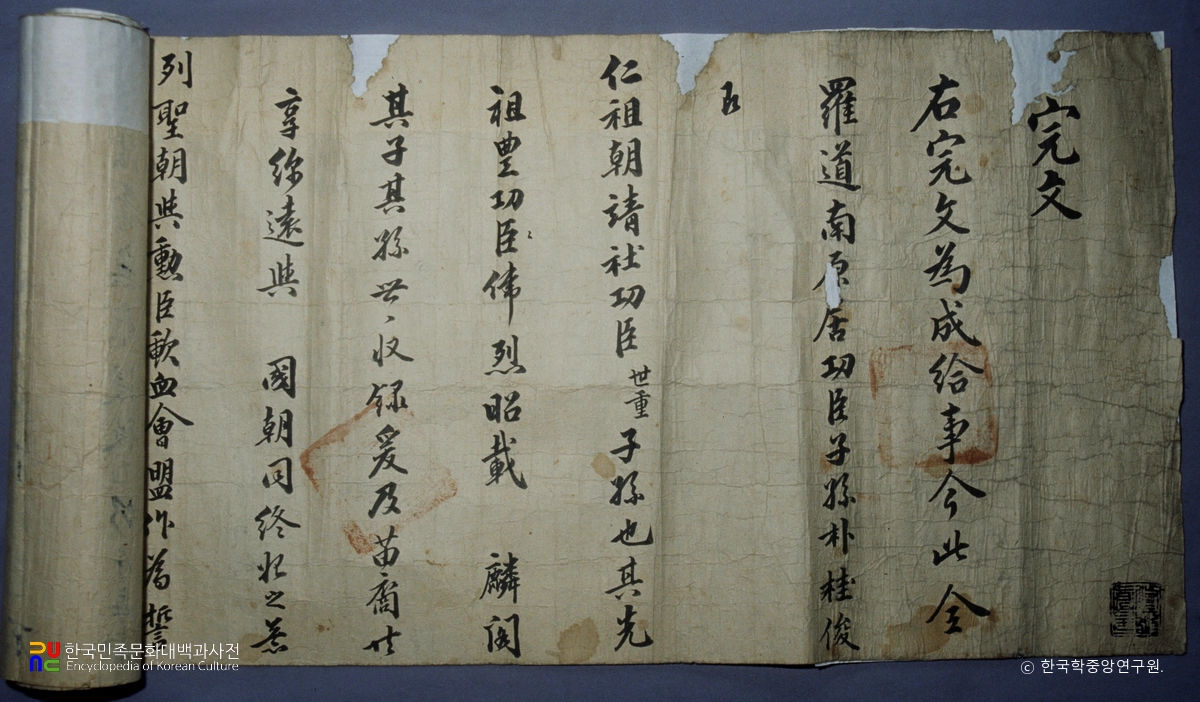 完文
右完文為成給事今此全
羅道南原居功臣子孫朴桂俊
仁祖朝靖社功臣世重子孫也其先
祖豊功臣偉烈昭載 麟閣
其子其孫世〻收錄爰及苗裔
享弥遠與 國朝同終始之意
列聖朝與勳臣歃血會盟作為誓
한국민족문화대백과사전
Encyclopedia of Korean Culture
ⓒ 한국학중앙연구원.